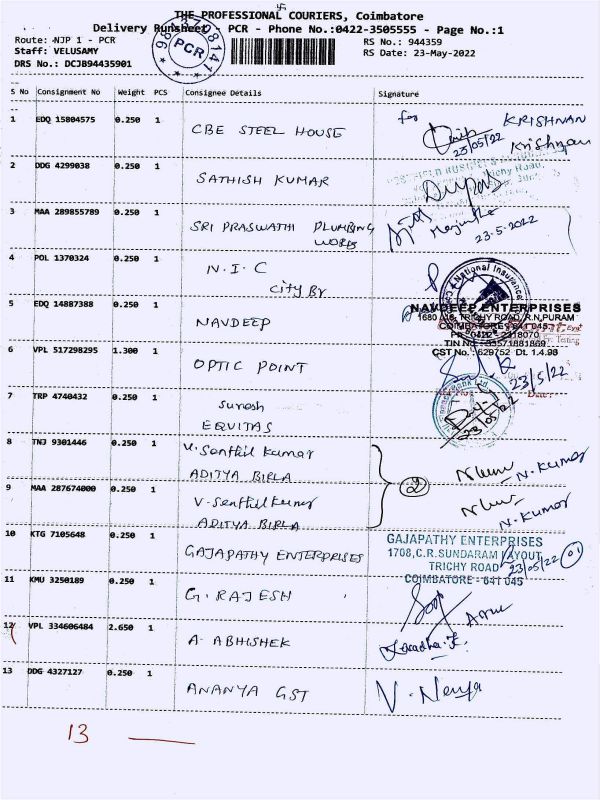 THE PROFESSIONAL COURIERS, Coimbatore
Delivery Runsheet - PCR - Phone No.:0422-3505555 - Page No.:1
Route: NJP 1 - PCR
RS No.: 944359
Staff: VELUSAMY
RS Date: 23-May-2022
DRS No.: DCJB94435901
PCR
S No Consignment No Weight PCS Consignee Details Signature
1 EDQ 15804575 0.250 1 CBE STEEL HOUSE for KRISHNAN
23/05/22 Krishnan
2 DDG 4299038 0.250 1 SATHISH KUMAR
Trichy Road,
3 MAA 289855789 0.250 1 SRI PRASWATHI PLUMBING
WORKS 23-5-2022
4 POL 1370324 0.250 1 N.I.C
City Br
National Insurance
5 EDQ 14887388 0.250 1 NAVDEEP
NAVDEEP ENTERPRISES
1680 TRICHY ROAD, R.N.PURAM
COIMBATORE 641 045
PH: 0422 - 2318070
TIN No.: 33571881869
CST No.: 629752 Dt. 1.4.96
6 VPL 517298295 1.300 1 OPTIC POINT
23/5/22
7 TRP 4740432 0.250 1 Suresh
EQUITAS
23/05/22
8 TNJ 9301446 0.250 1 V. Senthil Kumar
ADITYA BIRLA N. Kumar
9 MAA 287674000 0.250 1 V. Senthil Kumar
ADITYA BIRLA N. Kumar
2
10 KTG 7105648 0.250 1 GAJAPATHY ENTERPRISES
GAJAPATHY ENTERPRISES
1708, C.R. SUNDARAM LAYOUT,
TRICHY ROAD 23/05/22 01
COIMBATORE - 641 045
11 KMU 3250189 0.250 1 G. RAJESH
12 VPL 334606484 2.650 1 A. ABHISHEK
13 DDG 4327127 0.250 1 ANANYA GST
13